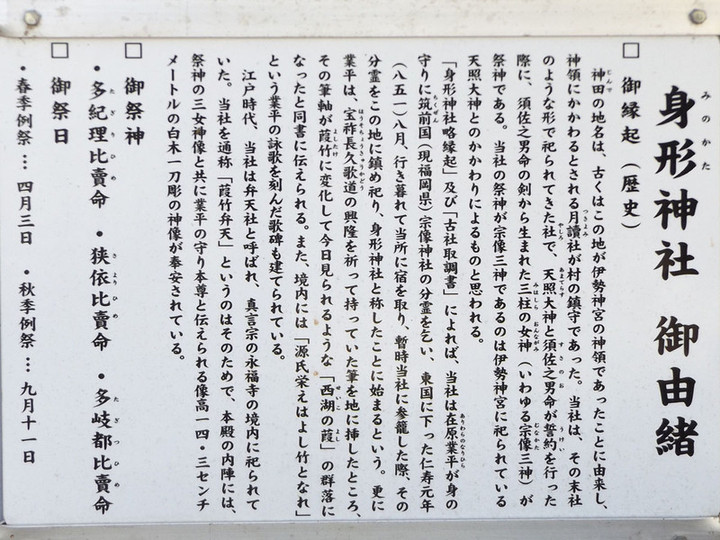 身形神社 御由緒
みのかた
□ 御縁起（歴史）
神田の地名は、古くはこの地が伊勢神宮の神領であったことに由来し、
神領にかかわるとされる月讀社が村の鎮守であった。当社は、その末社
のような形で祀られてきた社で、天照大神と須佐之男命が誓約を行った
際に、須佐之男命の剣から生まれた三柱の女神（いわゆる宗像三神）が
祭神である。当社の祭神が宗像三神であるのは伊勢神宮に祀られている
天照大神とのかかわりによるものと思われる。
「身形神社略縁起」及び「古社取調書」によれば、当社は在原業平が身の
守りに筑前国（現福岡県）宗像神社の分霊を乞い、東国に下った仁寿元年
（八五一）八月、行き暮れて当所に宿を取り、暫時当社に参籠した際、その
分霊をこの地に鎮め祀り、身形神社と称したことに始まるという。更に
業平は、宝祚長久歌道の興隆を祈って持っていた筆を地に挿したところ、
その筆軸が葭竹に変化して今日見られるような「西湖の葭」の群落に
なったと同書に伝えられる。また、境内には「源氏栄えはよし竹となれ」
という業平の詠歌を刻んだ歌碑も建てられている。
江戸時代、当社は弁天社と呼ばれ、真言宗の永福寺の境内に祀られて
いた。当社を通称「葭竹弁天」というのはそのためで、本殿の内陣には、
祭神の三女神像と共に業平の守り本尊と伝えられる像高一四・三センチ
メートルの白木一刀彫の神像が奉安されている。
□ 御祭神
・多紀理比賣命 ・狭依比賣命 ・多岐都比賣命
□ 御祭日
・春季例祭…四月三日 ・秋季例祭…九月十一日